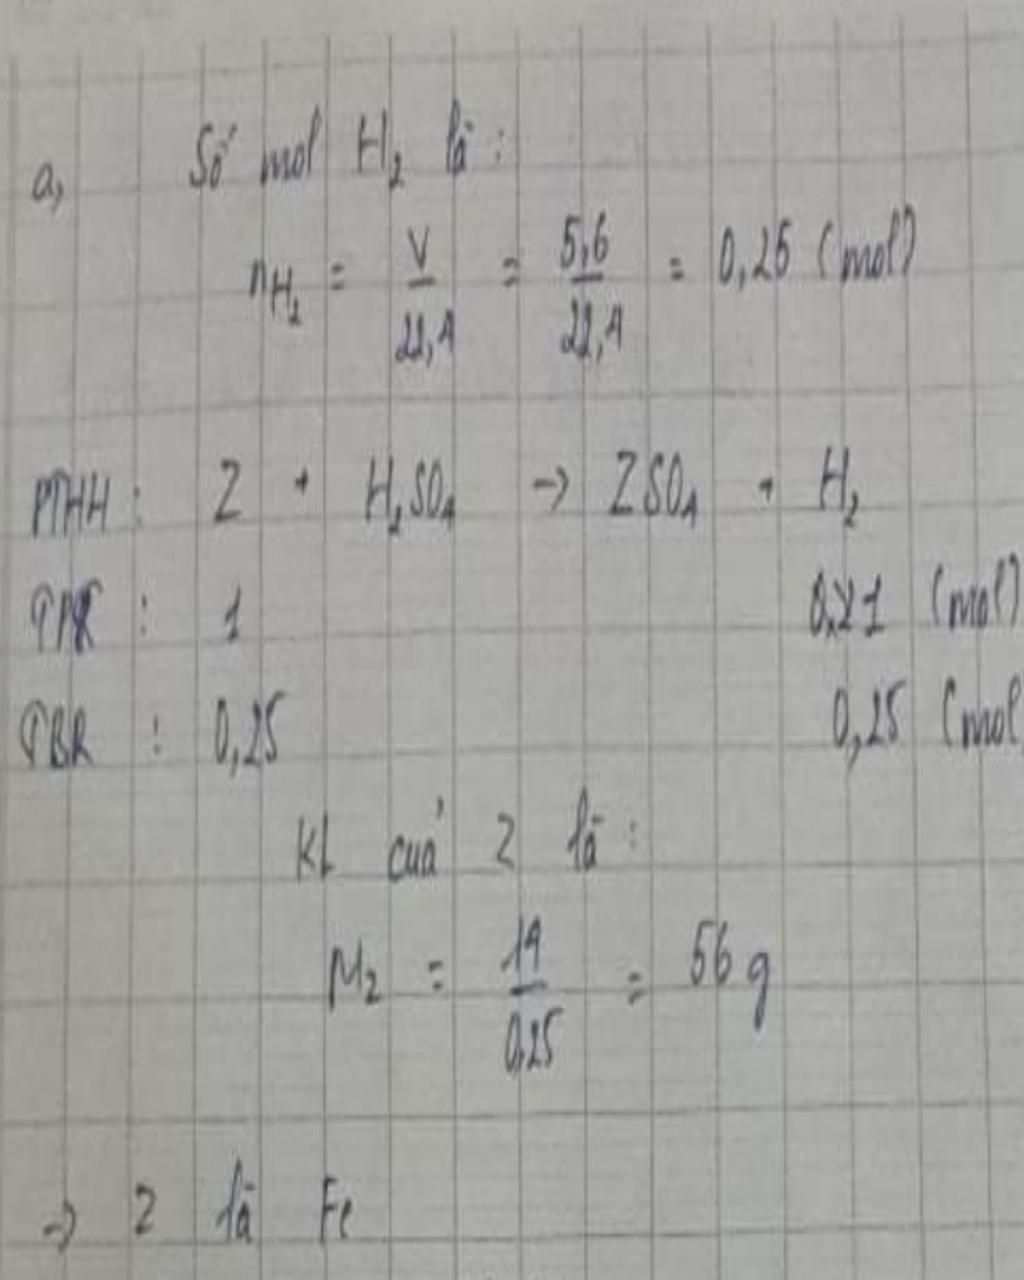 a, Số mol H₂ là :
nH₂ = V/22,4 = 5,6/22,4 = 0,25 (mol)
PTHH : Z + H₂SO₄ → ZSO₄ + H₂
: 1 1 (mol)
TBR : 0,25 0,25 (mol
KL của Z là :
Mz = 14/0,25 = 56 g
→ Z là Fe